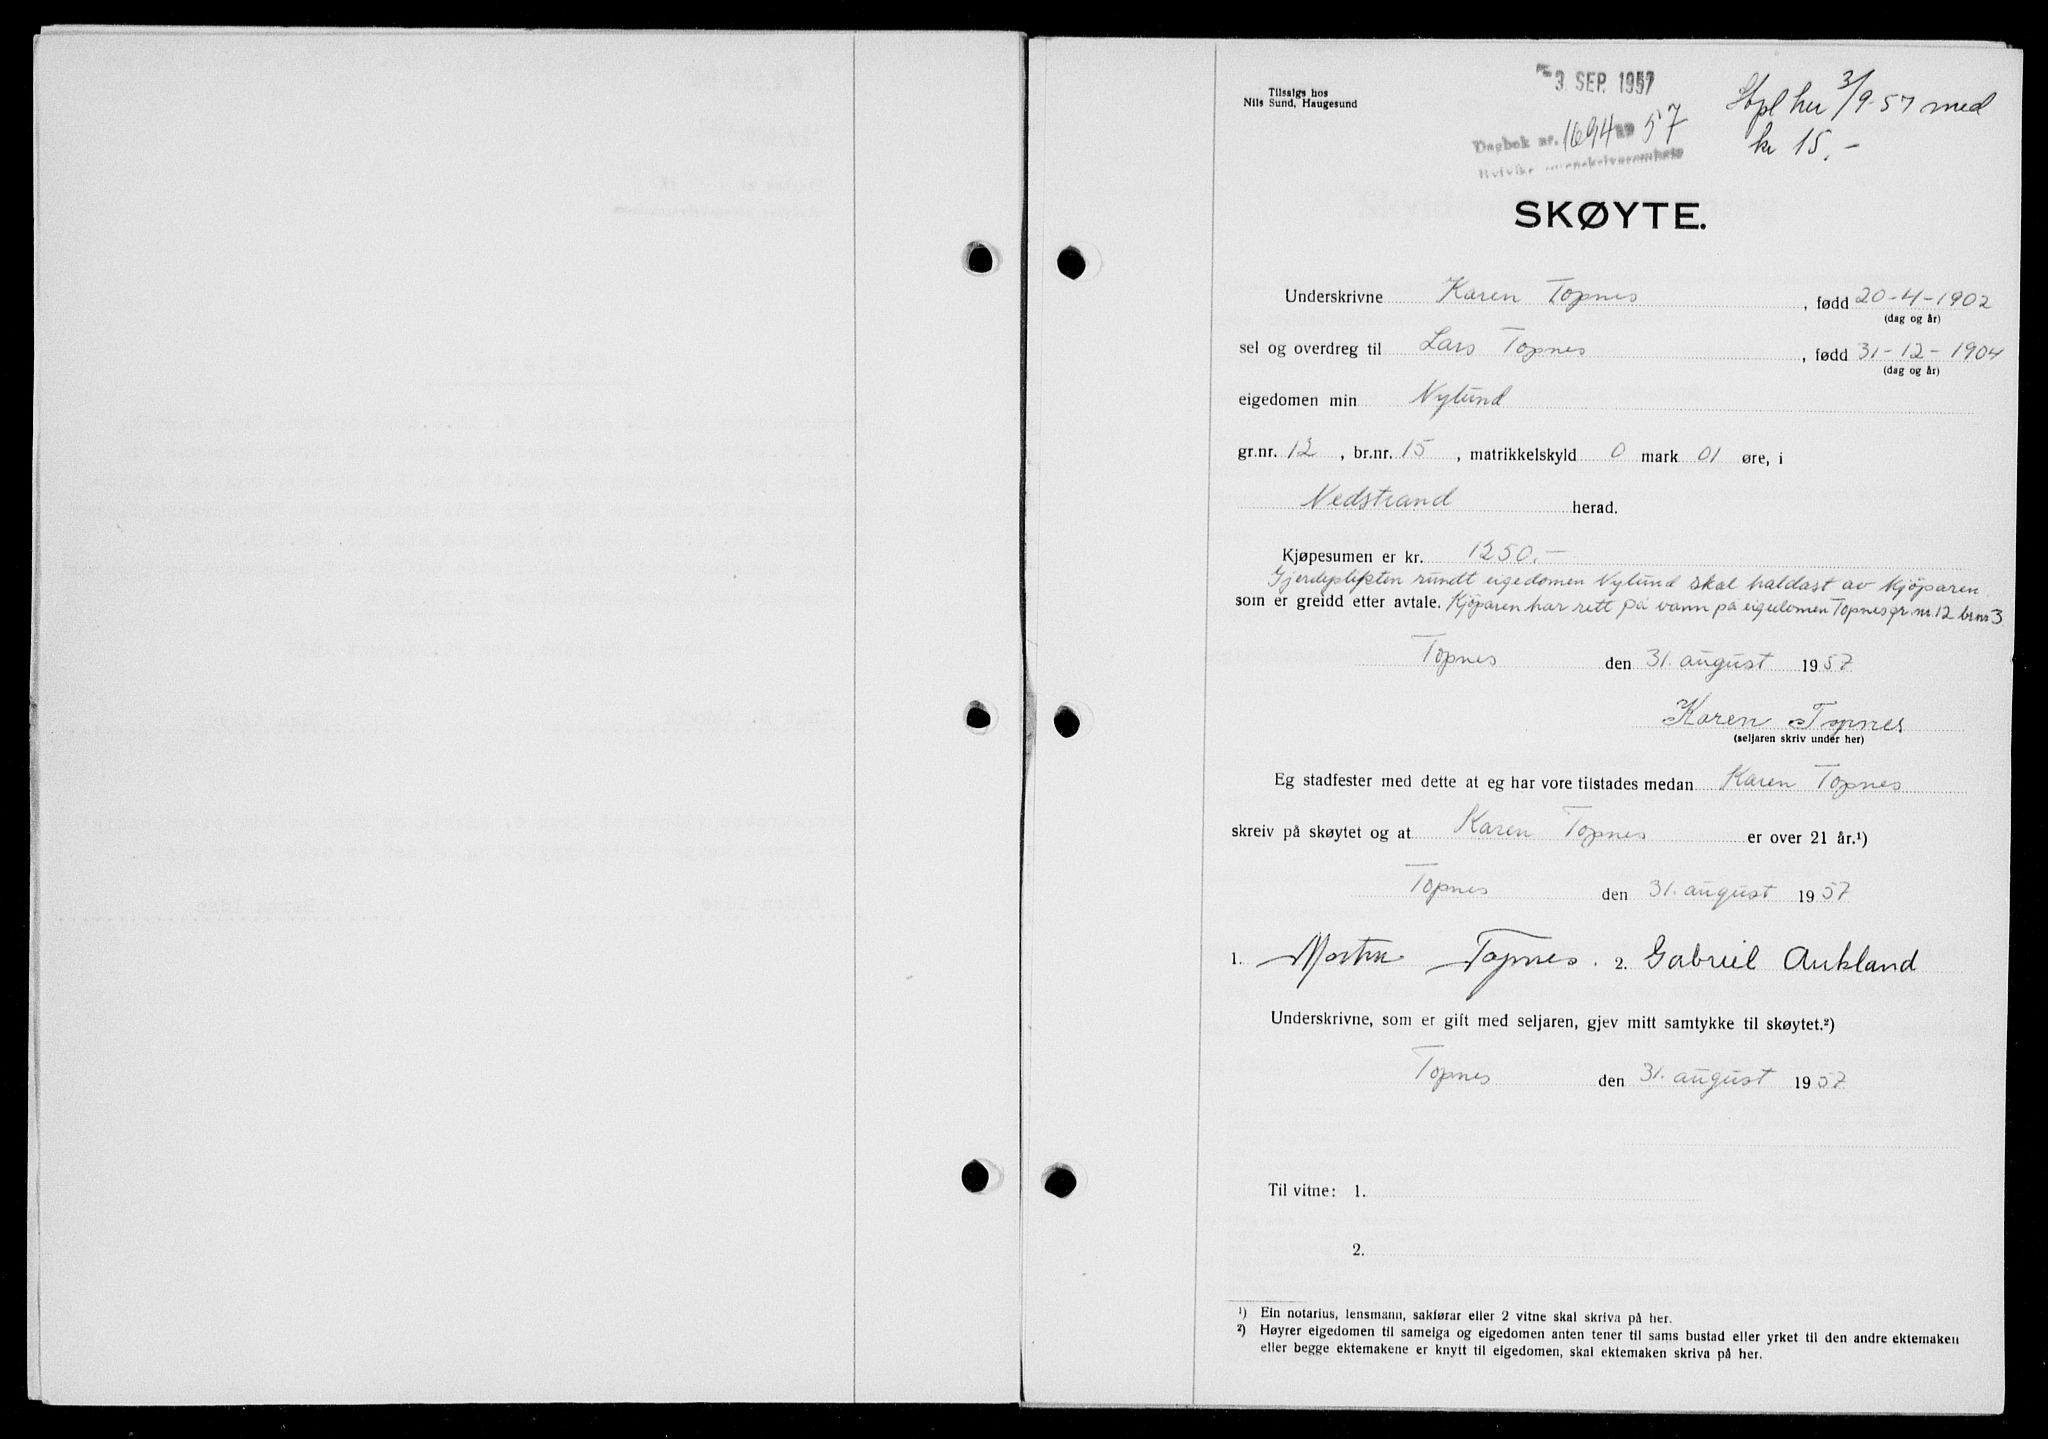 Tilsalgs hos
Nils Sund, Haugesund
3 SEP. 1957
Dagbok nr. 1694 19 57
Stpl her 3/9-57 med
kr 15.-
SKØYTE.
Underskrivne Karen Topnes, fødd 20-4-1902
(dag og år)
sel og overdreg til Lars Topnes, fødd 31-12-1904
(dag og år)
eigedomen min Nylund
gr.nr. 12, br.nr. 15, matrikkelskyld 0 mark 01 øre, i
Nedstrand herad.
Kjøpesumen er kr. 1250.-
Gjerdeplikten rundt eigedomen Nylund skal haldast av kjöparen.
som er greidd etter avtale. Kjöparen har rett på vann på eigedomen Topnes gr.nr. 12 br.nr 3
Topnes den 31. august 1957
Karen Topnes
(seljaren skriv under her)
Eg stadfester med dette at eg har vore tilstades medan Karen Topnes
skreiv på skøytet og at Karen Topnes er over 21 år.¹)
Topnes den 31. august 1957
1. Morten Topnes. 2. Gabriel Aukland
Underskrivne, som er gift med seljaren, gjev mitt samtykke til skøytet.²)
Topnes den 31. august 1957
Til vitne: 1.
2.
¹) Ein notarius, lensmann, sakførar eller 2 vitne skal skriva på her.
²) Høyrer eigedomen til sameiga og eigedomen anten tener til sams bustad eller yrket til den andre ektemaken
eller begge ektemakene er knytt til eigedomen, skal ektemaken skriva på her.